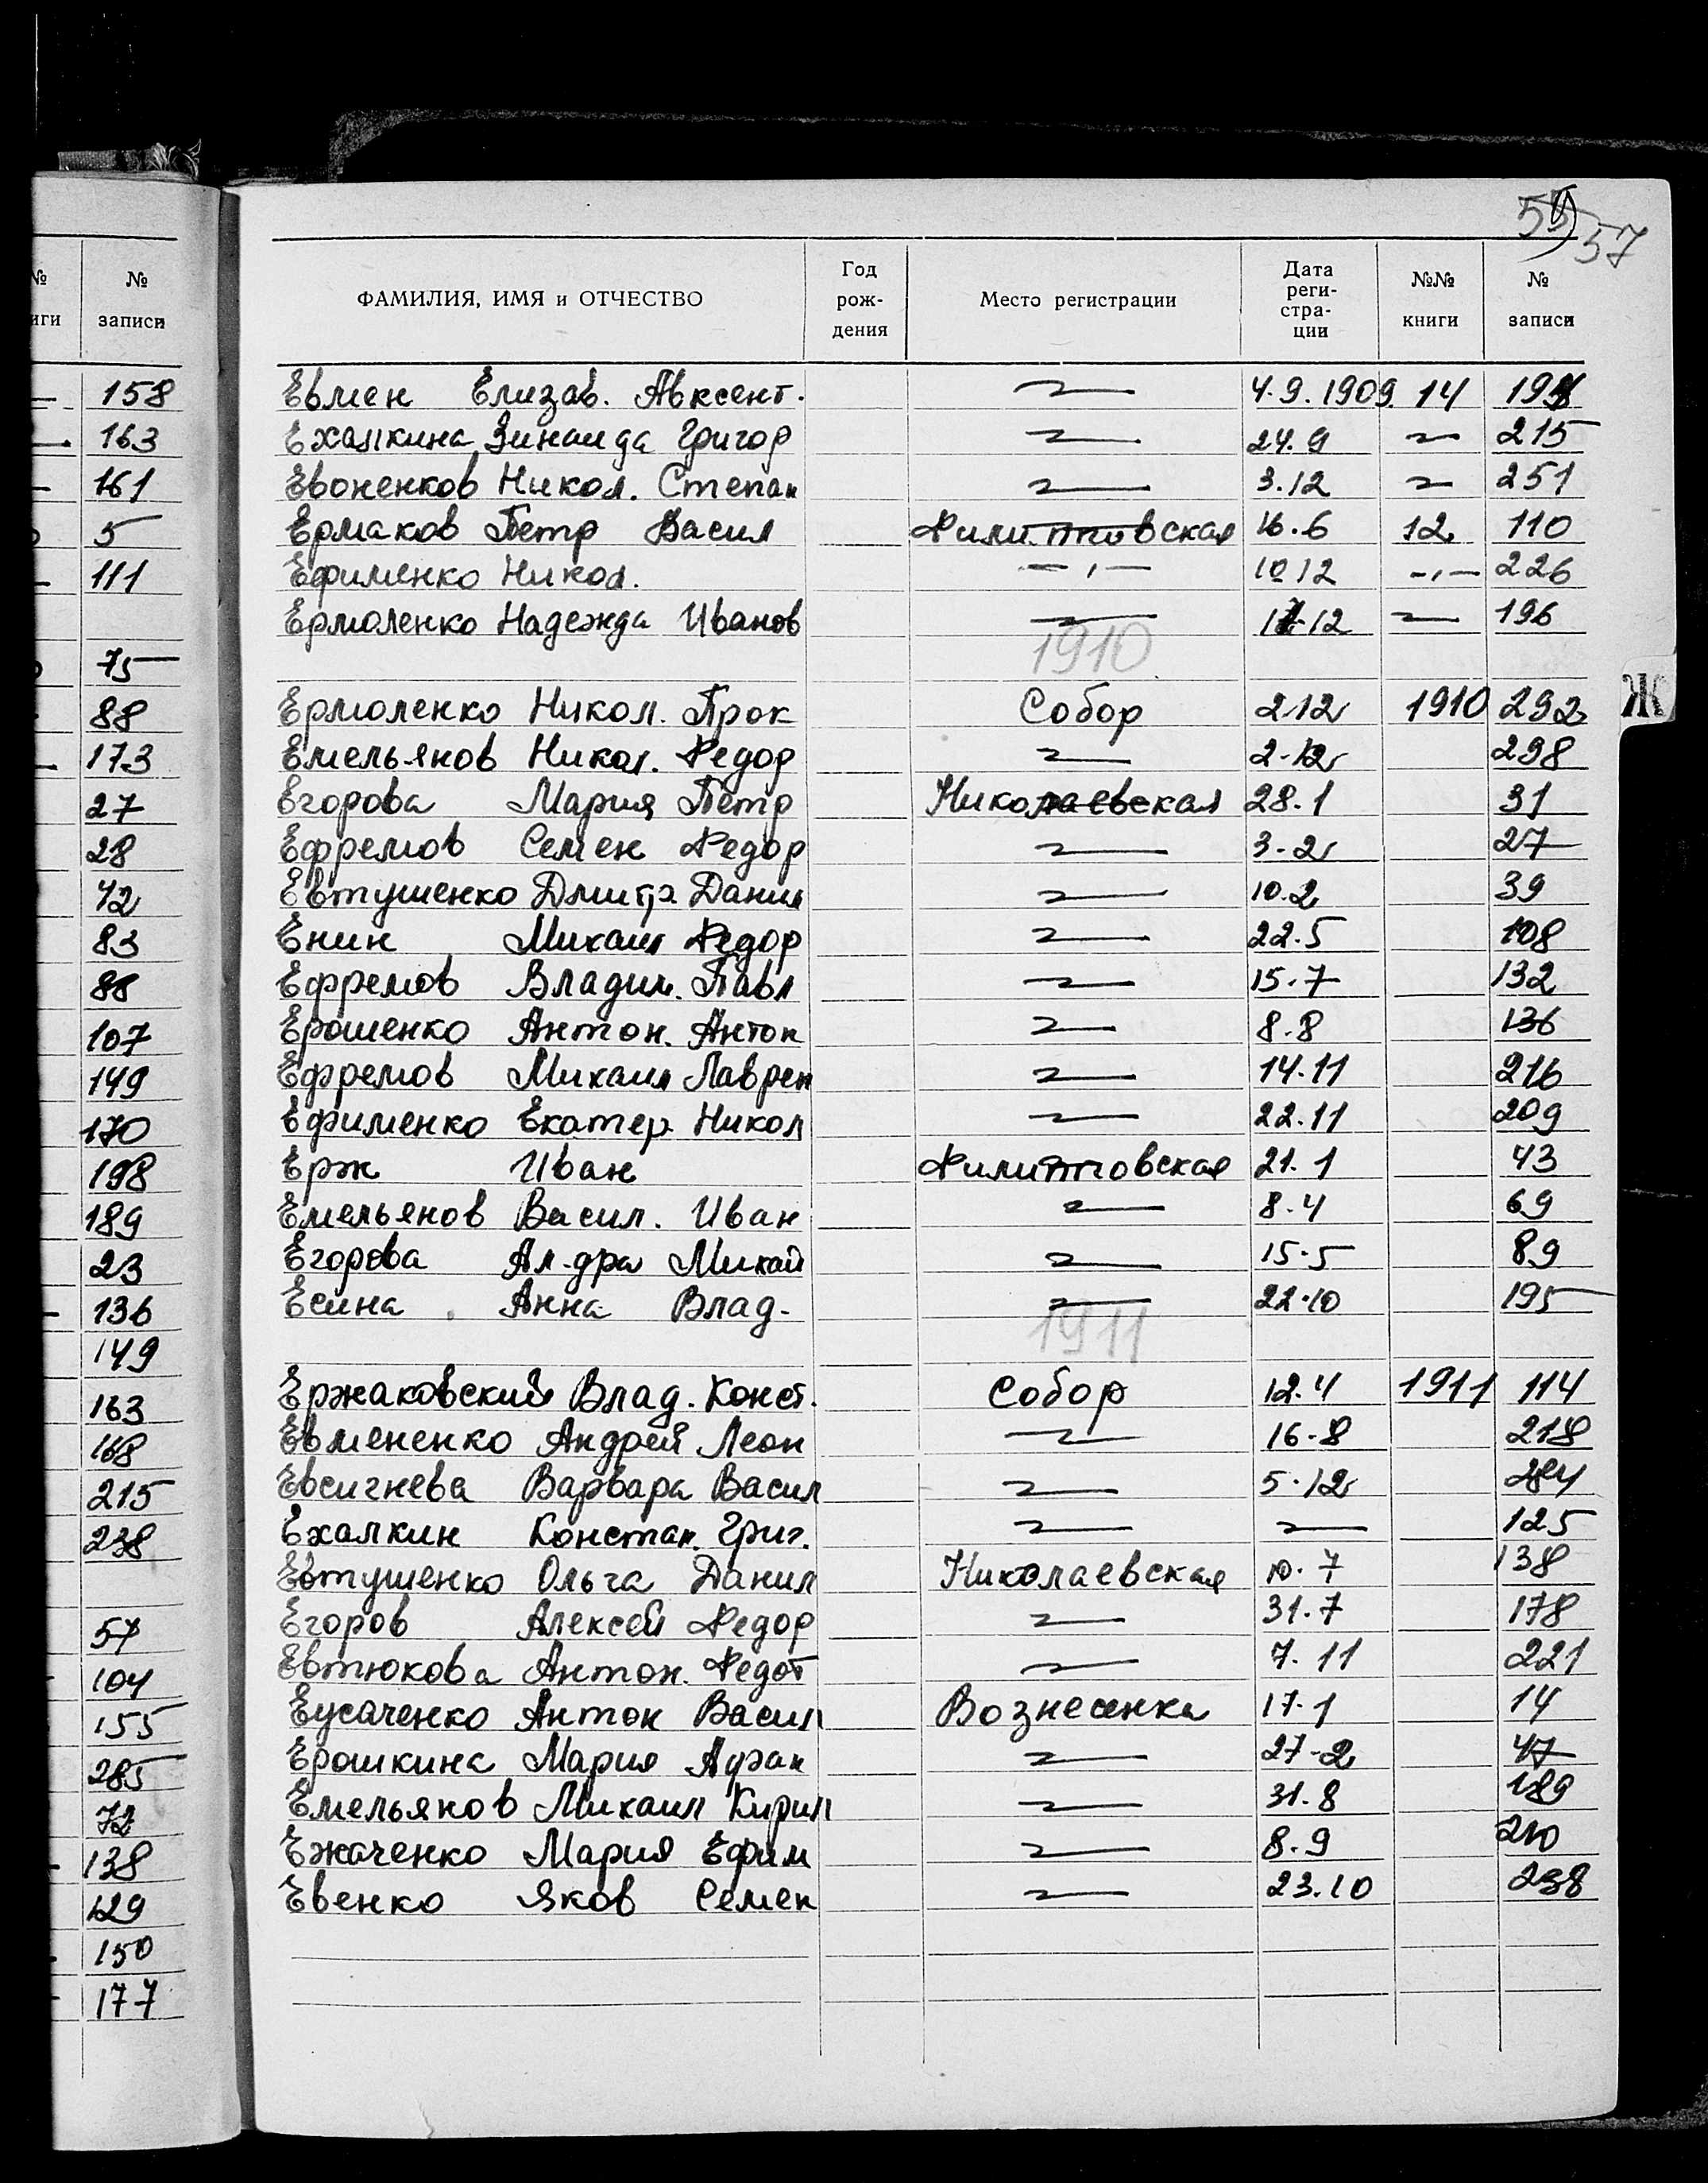 59 57
№ книги № записи
ФАМИЛИЯ, ИМЯ и ОТЧЕСТВО Год рож- дения Место регистрации Дата реги- стра- ции №№ книги № записи
158 Евмен Елизав. Авксент. 4.9.1909 14
163 Ехалкина Зинаида Григор 24.9 215
161 Евоненков Никол. Степан 3.12 251
5 Ермаков Петр Васил Филипповская 16.6 12 110
111 Ефименко Никол. —"— 10 12 —"— 226
Ермоленко Надежда Иванов 12 196
75 1910
88 Ермоленко Никол. Прок Собор 2 12 1910 292
173 Емельянов Никол. Федор 2.12 298
27 Егорова Мария Петр Николаевская 28.1 31
28 Ефремов Семен Федор 3.2 27
42 Евтушенко Дмитр Данил 10.2 39
83 Енин Михаил Федор 22.5 108
88 Ефремов Владим. Павл 15.7 132
107 Ерошенко Антон. Антон 8.8 136
149 Ефремов Михаил Лаврен 14.11 216
170 Ефименко Екатер Никол 22.11 209
198 Ерж Иван Филипповская 21.1 43
189 Емельянов Васил. Иван 8.4 69
23 Егорова Ал-дра Михай 15.5 89
136 Есина Анна Влад. 22.10 195
149 1911
163 Ержаковский Влад. Конст. Собор 12.4 1911 114
168 Евмененко Андрей Леон 16.8 218
215 Евсигнева Варвара Васил 5.12 284
238 Ехалкин Констан. Григ. 125
Евтушенко Ольга Данил Николаевская 10.7 138
57 Егоров Алексей Федор 31.7 178
104 Евтюкова Антон. Федот 7.11 221
155 Еусаченко Антон Васил Вознесенка 17.1 14
285 Ерошкина Мария 27-2 47
72 Емельянов Михаил Кирил 31.8 189
138 Ежаченко Мария Ефим 8.9 210
129 Евенко Яков Семен 23.10 238
150
177
Ж